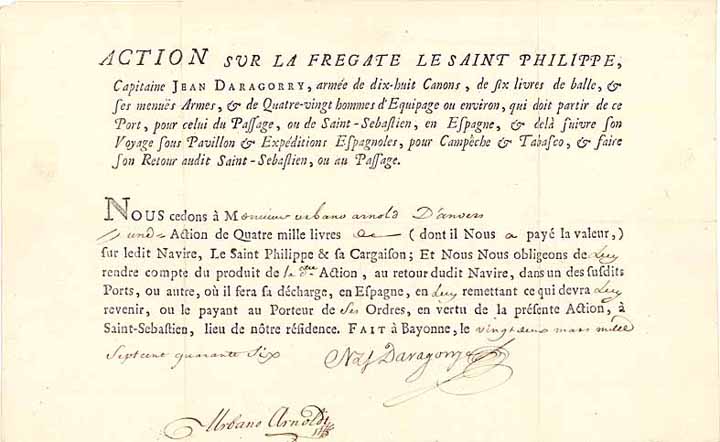 ACTION SUR LA FREGATE LE SAINT PHILIPPE,
Capitaine JEAN DARAGORRY, armée de dix-huit Canons, de ſix livres de balle, &
ſes menuës Armes, & de Quatre-vingt hommes d'Equipage ou environ, qui doit partir de ce
Port, pour celui du Paſſage, ou de Saint-Sebaſtien, en Eſpagne, & delà ſuivre ſon
Voyage ſous Pavillon & Expéditions Eſpagnoles, pour Campêche & Tabaſco, & faire
ſon Retour audit Saint-Sebaſtien, ou au Paſſage.
NOUS cedons à Monsieur urbano arnold D'anvers
une Action de Quatre mille livres (dont il Nous a payé la valeur,)
ſur ledit Navire, Le Saint Philippe & ſa Cargaiſon; Et Nous Nous obligeons de Luy
rendre compte du produit de la dte Action, au retour dudit Navire, dans un des ſuſdits
Ports, ou autre, où il fera ſa décharge, en Eſpagne, en Luy remettant ce qui devra Luy
revenir, ou le payant au Porteur de Ses Ordres, en vertu de la préſente Action, à
Saint-Sebaſtien, lieu de nôtre réſidence. FAIT à Bayonne, le vingt deux mars mille
Sept cent quarante Six Daragorry
Urbano Arnold